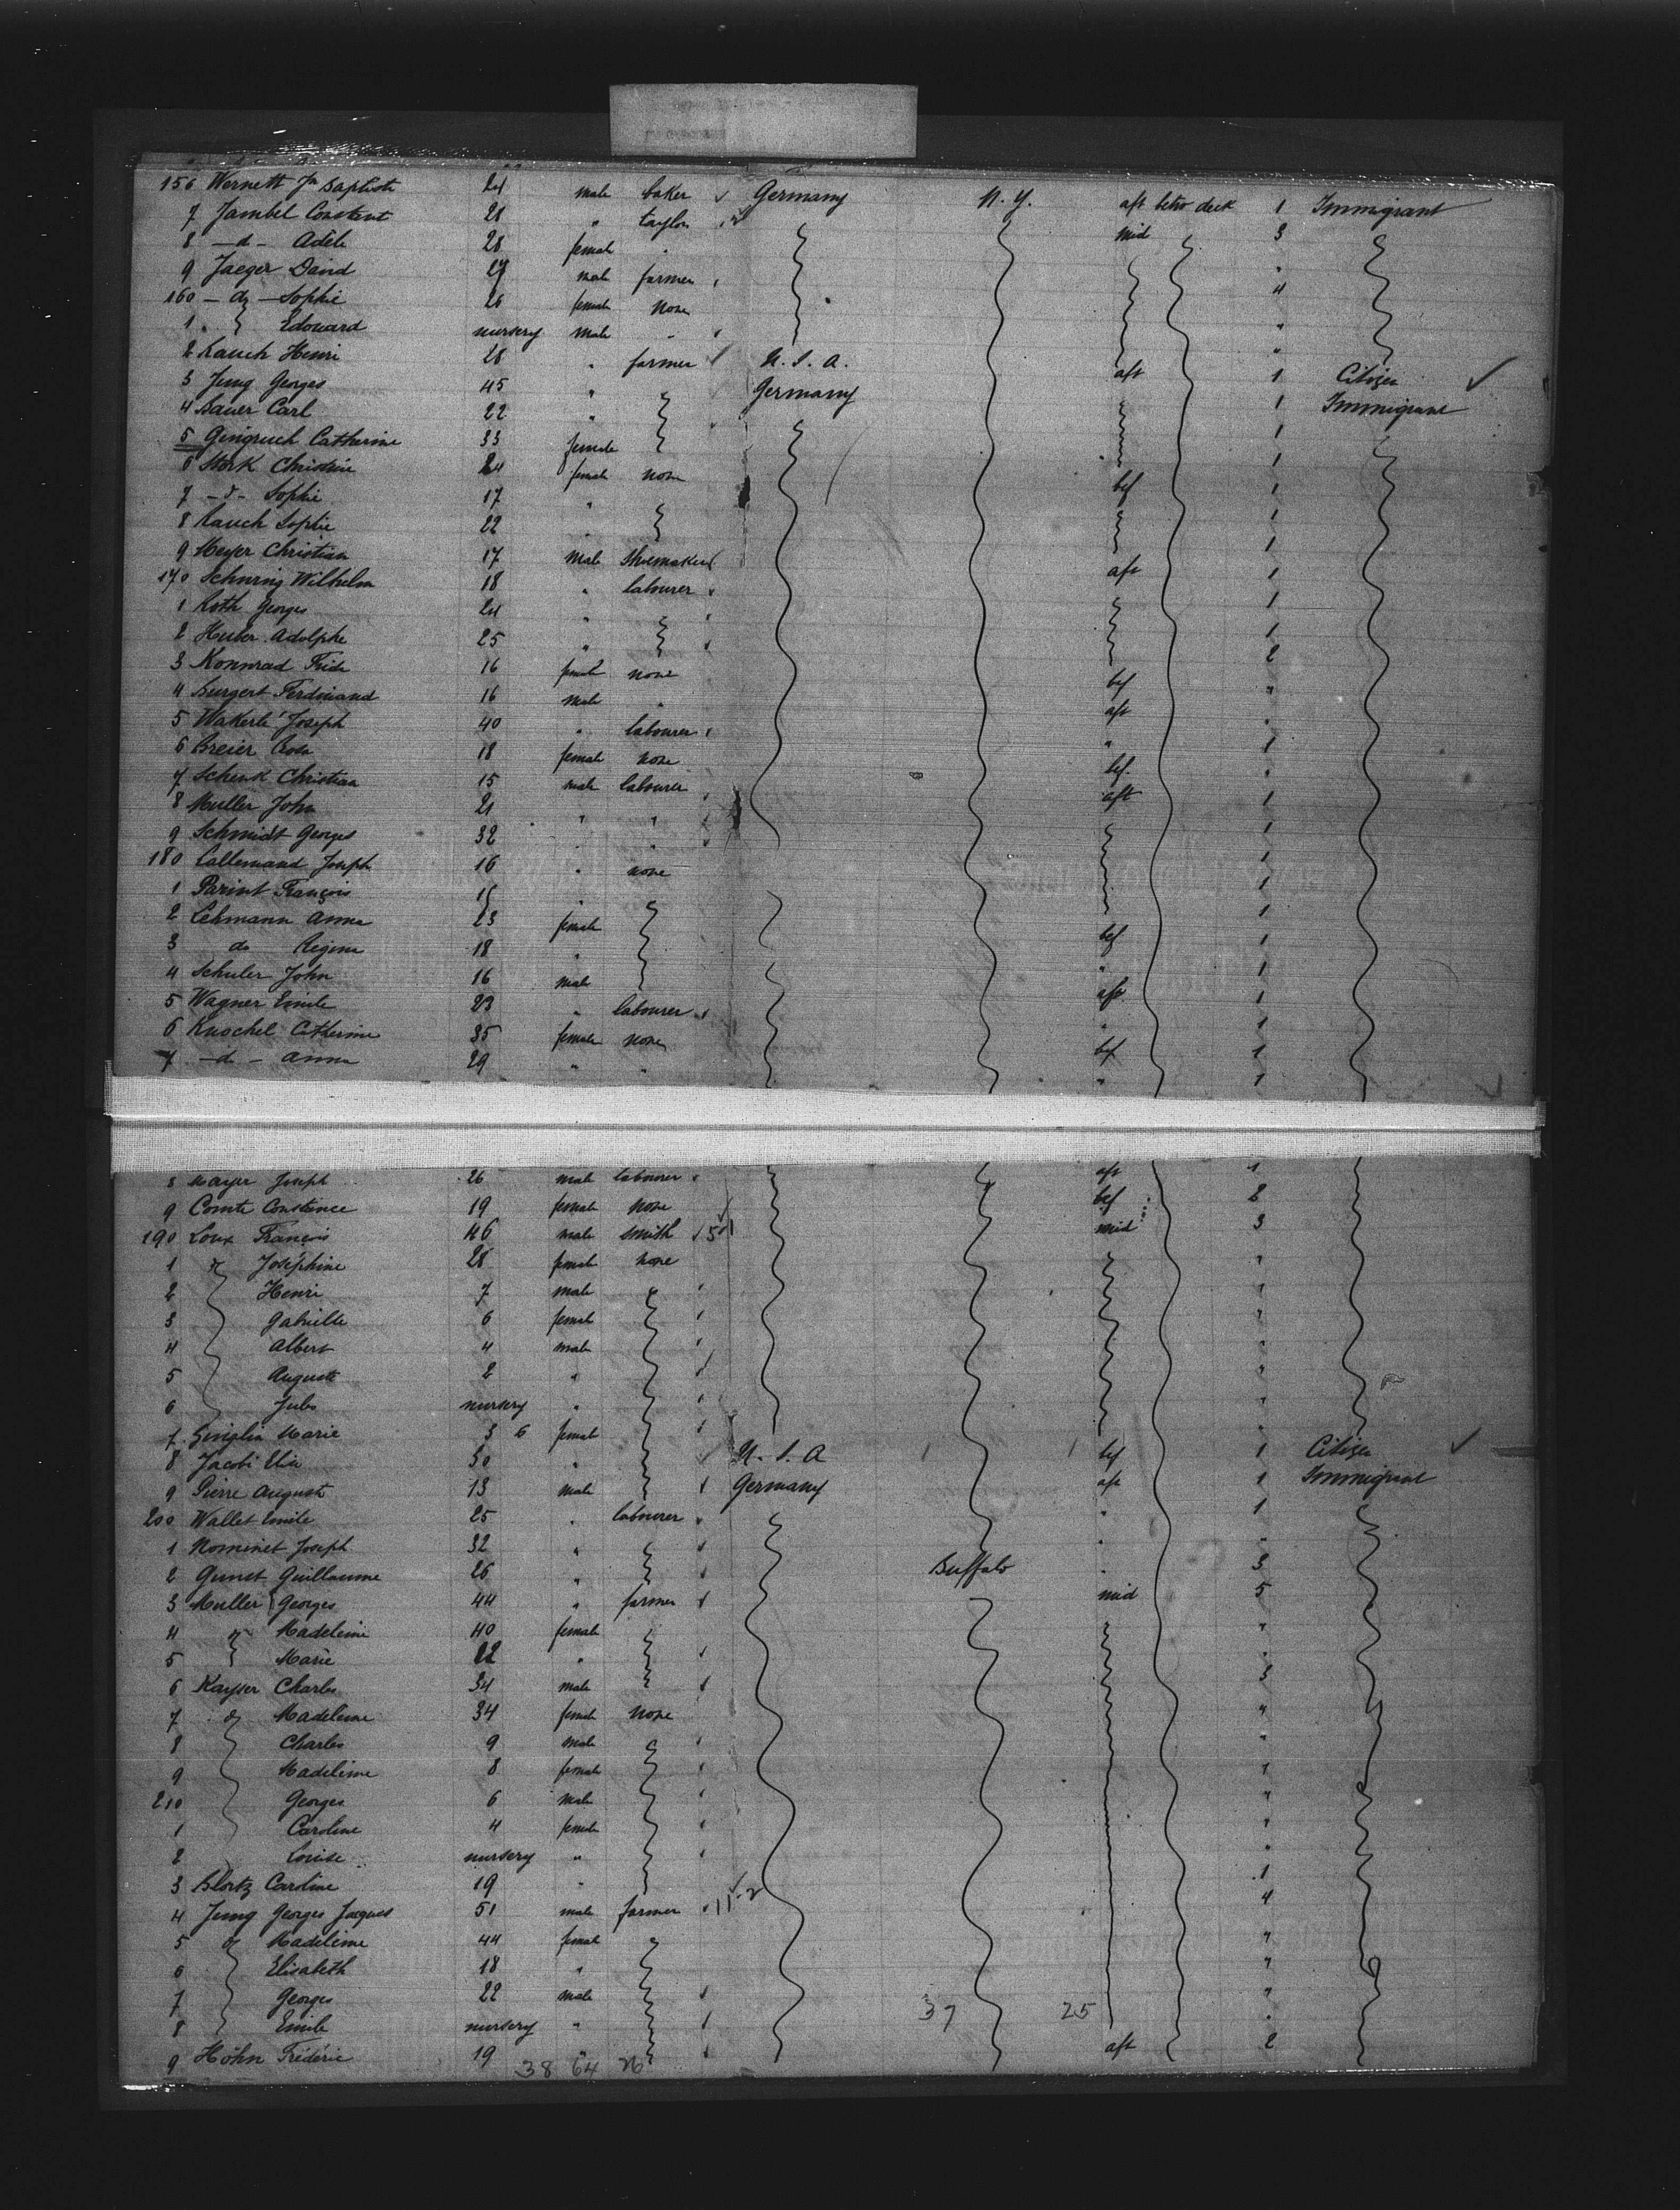 156 Wernett Jn Baptiste 24 male baker Germany N. Y. aft betw deck 1 Immigrant
7 Jambel Constant 28 " taylor mid 3
8 -d- Adèle 28 female "
9 Jaeger David 27 male farmer 4
160 - do - Sophie 26 female none "
1 " Edouard nursery male " "
2 Rauch Henri 28 " farmer U. S. A. aft 1 Citizen
3 Jung Georges 45 " Germany 1 Immigrant
4 Bauer Carl 22 " 1
5 Catherine 33 female 1
6 Stork Christine 24 female none bef 1
7 -d- Sophie 17 " 1
8 Rauch Sophie 22 " 1
9 Meyer Christian 17 male shoemaker aft 1
170 Schuring Wilhelm 18 " labourer 1
1 Roth Georges 24 " 1
2 Huber Adolphe 25 " 2
3 Konnrad 16 female none bef "
4 Burgert Ferdinand 16 male " aft "
5 Wakerlé Joseph 40 " labourer " 1
6 Breier Rosa 18 female none bef. "
7 Schenk Christian 15 male labourer aft 1
8 Muller John 21 " " 1
9 Schmidt Georges 32 " " 1
180 Lallemand Joseph 16 " none 1
1 Parint François " 1
2 Lehmann Anna 23 female bef 1
3 do Regina 18 " " 1
4 Schuler John 16 male aft 1
5 Wagner Emile 23 " labourer " 1
6 Knochel Catherine 35 female none bef 1
7 -d- Anna 29 " " " 1
8 Mayer Joseph 26 male labourer aft 1
9 Comte Constance 19 female none bef 2
190 Loux François 46 male smith mid 3
1 Joséphine 28 female none "
2 Henri 7 male "
3 Gabrielle 6 female "
4 Albert 4 male "
5 Auguste 2 " "
6 Jules nursery " "
7 Marie 3 6 female "
8 Jacobi 30 " U. S. A bef 1 Citizen
9 Pierre August 13 male Germany aft 1 Immigrant
200 Wallet Emile 25 " labourer " 1
1 Nominet Joseph 32 " " "
2 Gunst Guillaume 26 " Buffalo " 3
3 Muller Georges 44 " farmer mid 5
4 Madeleine 40 female "
5 Marie 22 " "
6 Kayser Charles 34 male 3
7 d Madeleine 34 female none "
8 Charles 9 male "
9 Madeleine 8 female "
210 Georges 6 male "
1 Caroline 4 female "
2 Louise nursery " "
3 Blortz Caroline 19 " 1
4 Jung Georges Jacques 51 male farmer 4
5 Madeleine 44 female "
6 Elisabeth 18 " "
7 Georges 22 male "
8 Emile nursery " 37 25 "
9 Höhn Fréderic 19 " aft 2
38 64 26